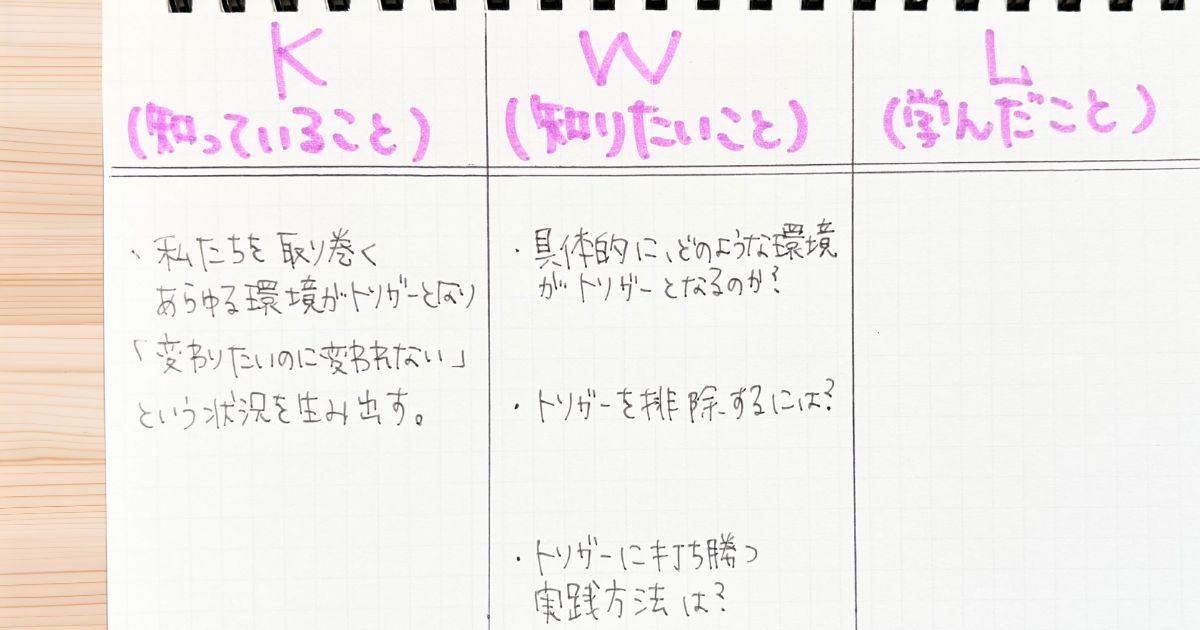 K
(知っていること)
W
(知りたいこと)
L
(学んだこと)
・私たちを取り巻く
あらゆる環境がトリガーとなり
「変わりたいのに変われない」
という状況を生み出す。
・具体的に、どのような環境
がトリガーとなるのか?
・トリガーを排除するには?
・トリガーに打ち勝つ
実践方法は?